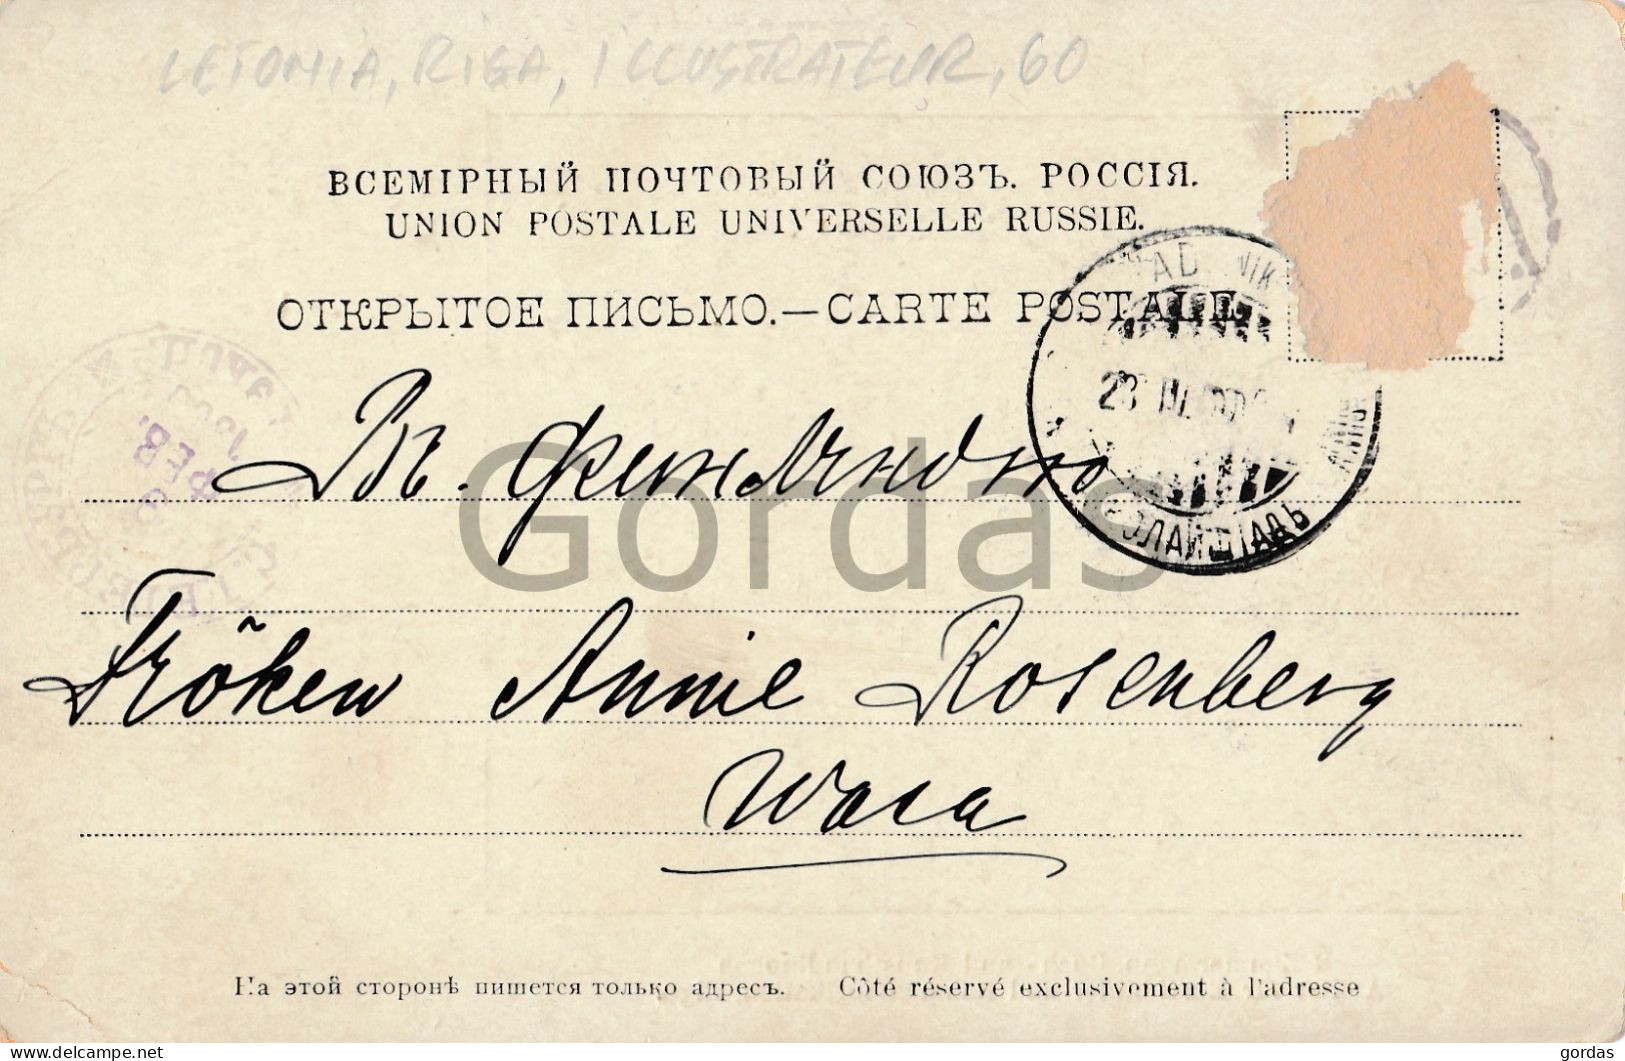 LETONIA, RIGA, ILLUSTRATEUR, 60
ВСЕМІРНЫЙ ПОЧТОВЫЙ СОЮЗЪ. РОССІЯ.
UNION POSTALE UNIVERSELLE RUSSIE.
ОТКРЫТОЕ ПИСЬМО.—CARTE POSTALE
Въ. Финляндію
Fröken Annie Rosenberg
Wasa
На этой сторонѣ пишется только адресъ. Côté réservé exclusivement à l'adresse
Gordas
delcampe.net
gordas